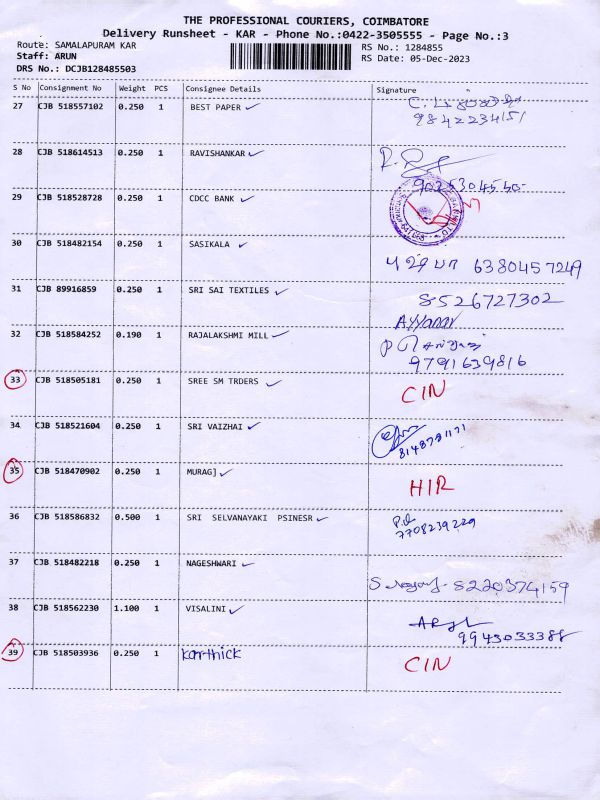 THE PROFESSIONAL COURIERS, COIMBATORE
Delivery Runsheet - KAR - Phone No.:0422-3505555 - Page No.:3
Route: SAMALAPURAM KAR
RS No.: 1284855
Staff: ARUN
RS Date: 05-Dec-2023
DRS No.: DCJB128485503
S No Consignment No Weight PCS Consignee Details Signature
27 CJB 518557102 0.250 1 BEST PAPER ✓
9842234151
28 CJB 518614513 0.250 1 RAVISHANKAR ✓
29 CJB 518528728 0.250 1 CDCC BANK ✓
30 CJB 518482154 0.250 1 SASIKALA ✓
புஷ்பா 6380457249
31 CJB 89916859 0.250 1 SRI SAI TEXTILES ✓
8526727302
32 CJB 518584252 0.190 1 RAJALAKSHMI MILL ✓
9791639816
33 CJB 518505181 0.250 1 SREE SM TRDERS ✓ CIN
34 CJB 518521604 0.250 1 SRI VAIZHAI ✓
35 CJB 518470902 0.250 1 MURAG] ✓
HIR
36 CJB 518586832 0.500 1 SRI SELVANAYAKI PSINESR ✓
7708239229
37 CJB 518482218 0.250 1 NAGESHWARI ✓
8220374159
38 CJB 518562230 1.100 1 VISALINI ✓
9943033388
39 CJB 518503936 0.250 1 Karthick CIN